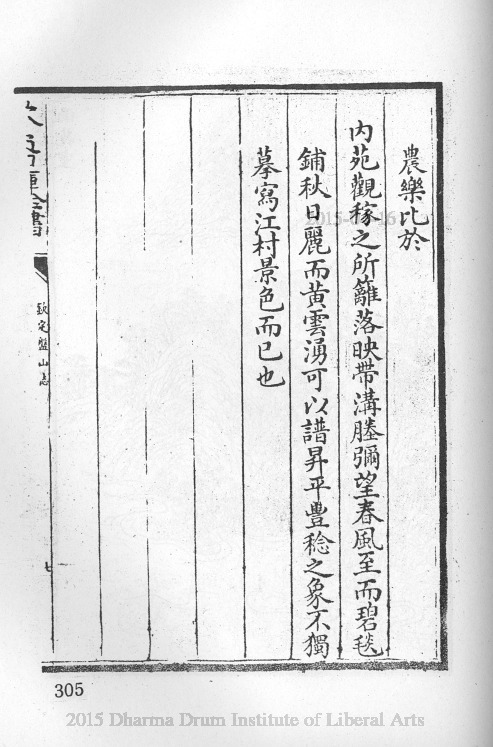 農樂比於
內苑觀稼之所籬落映帶溝塍彌望春風至而碧毯
鋪秋日麗而黃雲湧可以譜昇平豐稔之象不獨
摹寫江村景色而已也
欽定盤山志
305
2015 Dharma Drum Institute of Liberal Arts